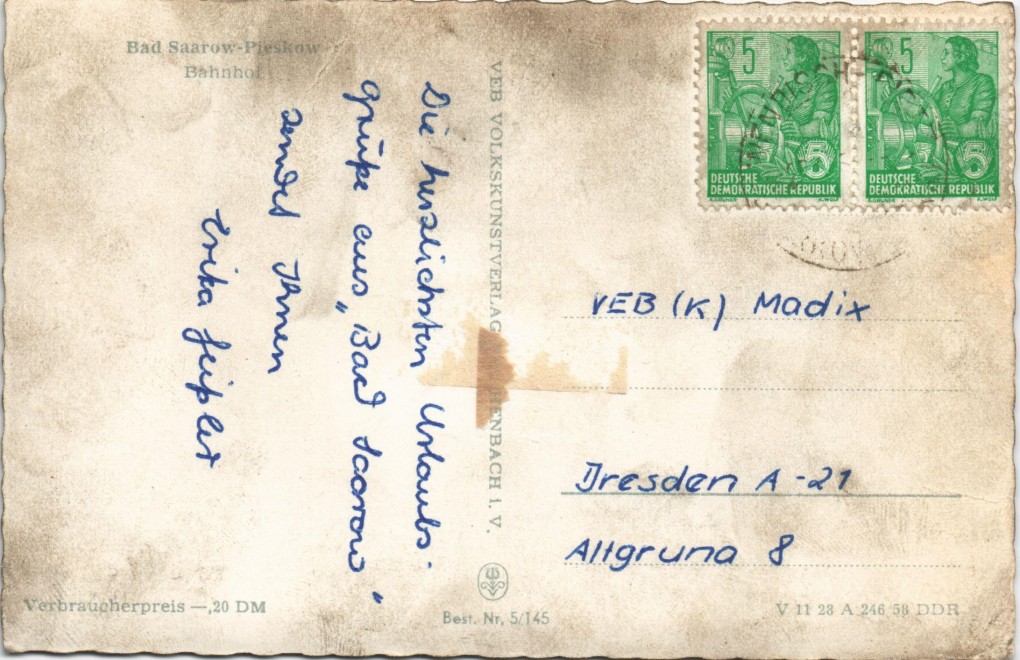 Bad Saarow-Pieskow
Bahnhof
Die herzlichsten Urlaubs-
grüße aus „Bad Saarow“
sendet Ihnen
Erika Geißler
VEB VOLKSKUNSTVERLAG REICHENBACH i. V.
5
5
DEUTSCHE
DEMOKRATISCHE REPUBLIK
5
5
DEUTSCHE
DEMOKRATISCHE REPUBLIK
VEB (K) Madix
Dresden A-21
Altgruna 8
Verbraucherpreis —,20 DM
Best. Nr. 5/145
V 11 28 A 246 58 DDR